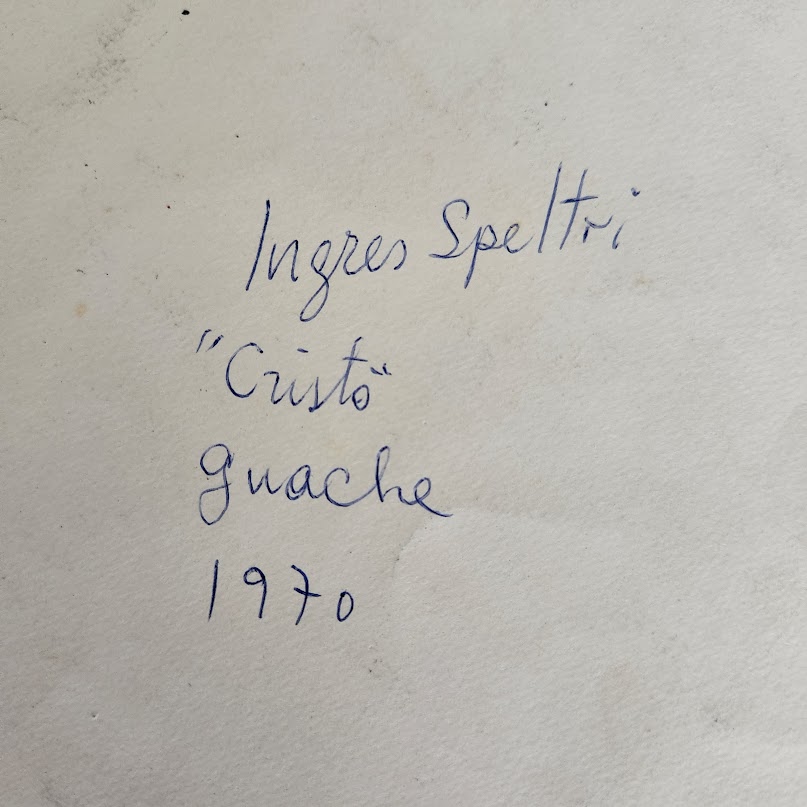 Ingres Speltri
"Cristo"
guache
1970